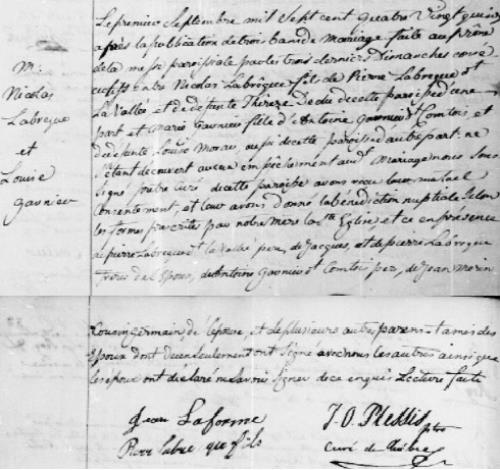 M:
Nicolas
Labreque
et
Louise
Garnier
Le premier Septembre mil Sept cent quatre Vingt quinze
après la publication de trois bans de Mariage faite au prône
de la messe paroissiale par les trois derniers Dimanches consé
cutifs entre Nicolas Labrèque fils de Pierre Labreque et
La Vallée et de défunte Thereze Dedu de cette paroisse d'une
part et Marie Garnier fille d'Antoine Garnier Comtois, et
de défunte Louise Morau, aussi de cette paroisse d'autre part: ne
S'étant decouvert aucun empêchement audt Mariage nous Sous
Signé prêtre Curé de cette paroisse avons reçu leur mutuel
Consentement, et leur avons donné la bénédiction nuptiale Selon
les formes prescrites par notre mere la Ste Eglise, et ce en presence
de pierre Labreque dt la Vallée pere, de Jacques, et de pierre Labreque
freres de l'Epoux, de Antoine Garnier dt Comtois pere, de Jean Morin
Cousin Germain de l'epouse, et de plusieurs autres parens et amis des
Epoux dont deux Seulement ont Signé avec nous les autres ainsi que
les epoux ont déclaré ne Savoir Signer de ce enquis Lecture faite
Jean Laforme
Pierr labre que fils
J. O. Plessis ptre
Curé de Québec